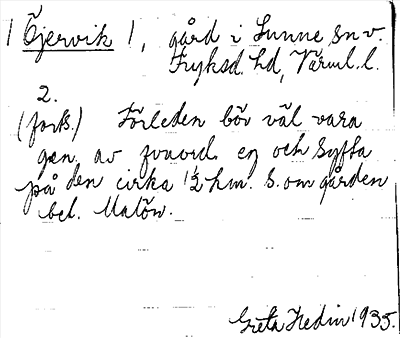 1 Öjervik 1, gård i Sunne sn v.
Fryksd. hd, Värml. l.
2.
(forts.) Förleden bör väl vara
gen. av fvnord. ey och syfta
på den cirka 1½ km. S. om gården
bel. Malön.
Greta Hedin 1935.